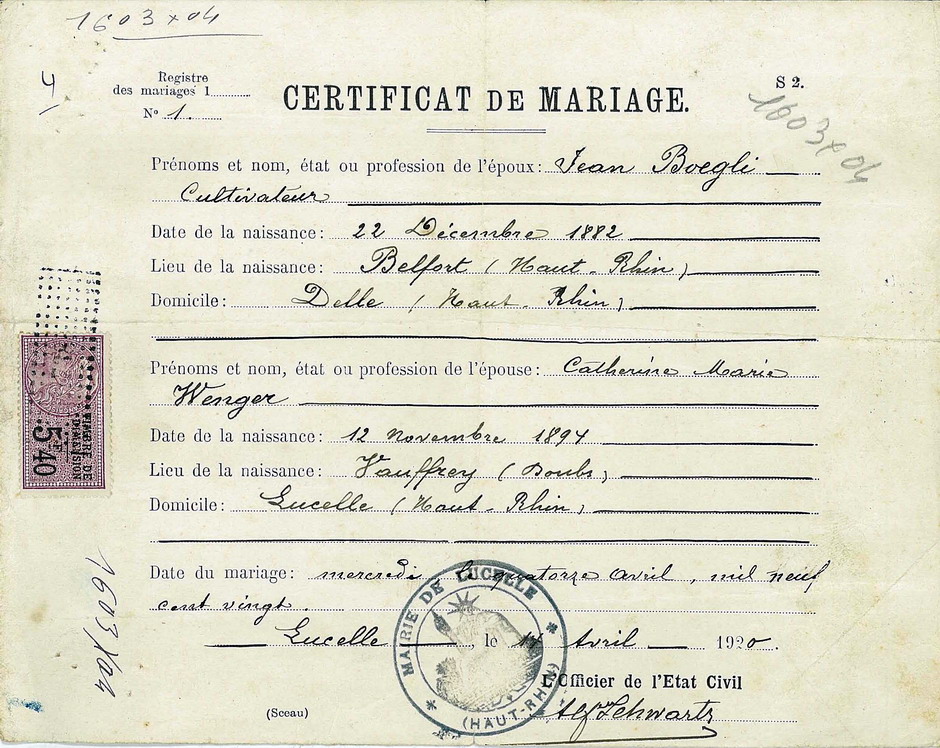 1603x04
4
Registre
des mariages 1
Nº 1.
CERTIFICAT DE MARIAGE.
S 2.
1603x04
Prénoms et nom, état ou profession de l'époux: Jean Boegli
Cultivateur
Date de la naissance: 22 Décembre 1882
Lieu de la naissance: Belfort (Haut-Rhin)
Domicile: Delle (Haut-Rhin)
Prénoms et nom, état ou profession de l'épouse: Catherine Marie
Wenger
Date de la naissance: 12 Novembre 1894
Lieu de la naissance: Vauffrey (Doubs)
Domicile: Lucelle (Haut-Rhin)
TIMBRE DE
DIMENSION
5F40
Date du mariage: mercredi le quatorze avril, mil neuf
cent vingt.
Lucelle, le 14 Avril 1920.
MAIRIE DE LUCELLE
(HAUT-RHIN)
L'Officier de l'Etat Civil
(Sceau)
Schwartz
1603x04